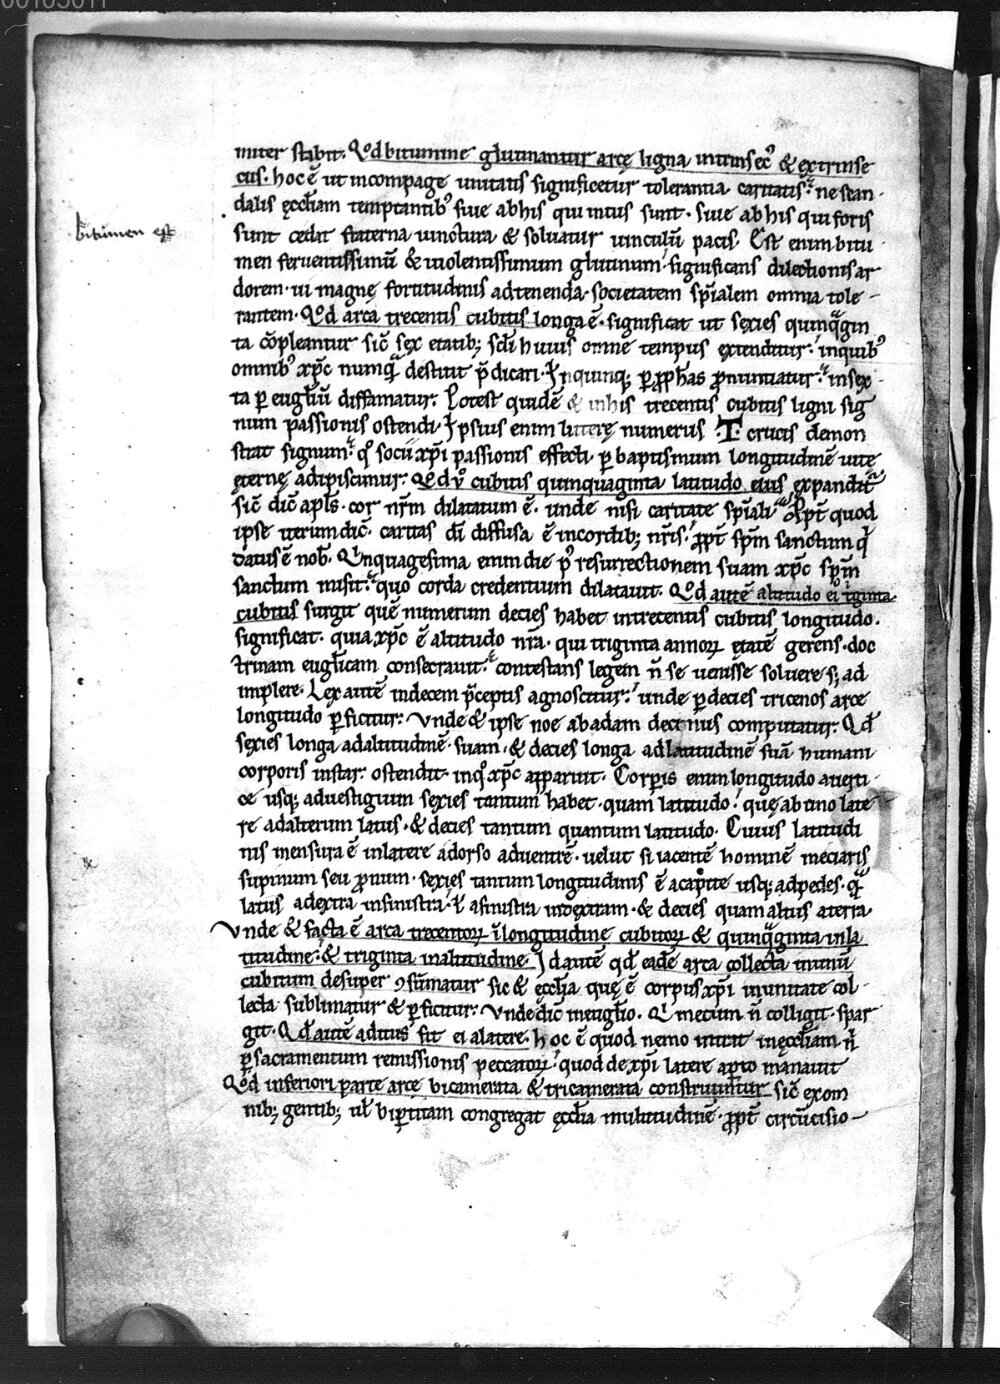 00105011
miter stabit. Qd bitumine glutinantur arcę ligna intrinsec᷒ & extrinse
cus. hoc ē ut in compage unitatis significetur tolerantia caritatis. ne scan-
dalis ęccl̄iam temptantib᷒ siue ab his qui intus sunt. siue ab his qui foris
bitumen est
sunt cedat fraterna iunctura & soluatur uinculū pacis. Est enim bitu
men feruentissimū & uiolentissimum glutinum. significans dilectionis ar
dorem. ui magnę fortitudinis ad tenenda societatem sp̄ialem omnia tole-
rantem. Qd arca trecentis cubitis longa ē. significat ut sexies quinq̄gin
ta cōpleantur sic̄ sex etatib; sc̄li huius omnē tempus extenditur. in quib᷒
omnib᷒ xp̄c numq̄ destitit p̄dicari. In quinq; ꝑ ꝓph̄as ꝓnuntiatur. in sex-
ta ꝑ eugl̄iū diffamatur. Potest quidē & in his trecentis cubitis ligni sig
num passionis ostendi. Ipsius enim litterę numerus T crucis demon
strat signum. qͦ socii xp̄i passionis effecti. ꝑ baptismum longitudinē uite
ęternę adipiscimur. Qd v͛ cubitis quinquaginta latitudo eius expandit᷒
sic̄ dic̄ apl̄s. cor nr̄m dilatatum ē. unde nisi caritate sp̄iali. ꝓpt̄ quod
ipse iterum dic̄. caritas dī diffusa ē in cordib; nr̄is. ꝓpt̄ sp̄m sanctum q̄
datus ē nob̄. Quinquagesima enim die p᷒ resurrectionem suam xp̄c sp̄m
sanctum misit. quo corda credentium dilatauit. Qd autē altitudo ei᷒ tͥginta
cubitis surgit quē numerum decies habet in trecentis cubitis longitudo.
significat. quia xp̄c ē altitudo nr̄a. qui triginta annoꝝ etatē gerens. doc
trinam eugl̄icam consecrauit. contestans legem n̄ se uenisse soluere s; ad
implere. Lex autē in decem p̄ceptis agnoscitur. unde ꝑ decies tricenos arce
longitudo ꝑficitur. Vnde & ipse noe ab adam decimus computatur. Qd
sexies longa ad altitudinē suam. & decies longa ad latitudinē suā humani
corporis instar ostendit. in qͦ xp̄c apparuit. Corꝑis enim longitudo a uerti-
ce usq; ad uestigium sexies tantum habet. quam latitudo. quę ab uno late
re ad alterum latus. & decies tantum quantum latitudo. Cuius latitudi
nis mensura ē in latere a dorso ad uentrē. uelut si iacentē hominē meciaris
supinum seu pronum. sexies tantum longitudinis ē a capite usq; ad pedes. q̄
latus a dextra in sinistra. ł a sinistra in dextram. & decies quam altus a terra.
Vnde & facta ē arca trecentoꝝ ī longitudine cubitoꝝ & quinq̄ginta in la
titudine. & triginta in altitudine. Id autē qd̄ eadē arca collecta in unū
cubitum desuper ꝯsūmatur sic & ęccl̄ia quę ē corpus xp̄i in unitate col-
lecta sublimatur & ꝑficitur. Vnde dic̄ in eugl̄io. Qi mecum n̄ colligit. spar
git. Qd autē aditus fit ei a latere. hoc ē quod nemo intrat in ęccl̄iam n̄
ꝑ sacramentum remissionis peccatoꝝ. quod de xp̄i latere aꝑto manauit
Qd inferiori parte arcę bicamerata & tricamerata construuntur sic̄ ex om
nib; gentib; ul̄ biꝑtitam congregat ęccl̄ia multitudinē. ꝓpt̄ circūcisio-